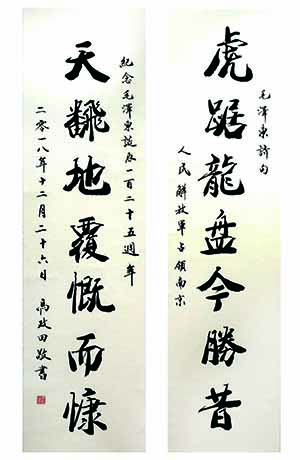 毛澤東詩句
虎踞龍盘今勝昔
人民解放軍占領南京
紀念毛澤東誕辰一百二十五週年
天飜地覆慨而慷
二零一八年十二月二十六日 高政田敬書